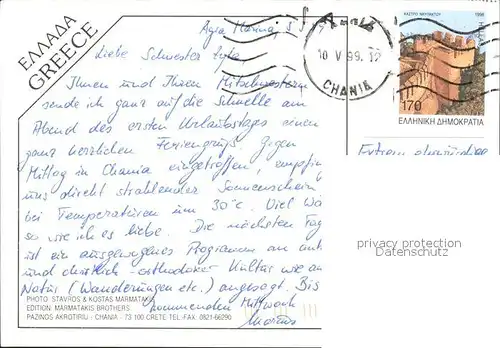 ΕΛΛΑΔΑ
GREECE
Agia Marina, 5.5
Liebe Schwester
Ihnen und Ihren Mitschwestern
sende ich ganz auf die Schnelle am
Abend des ersten Urlaubstages einen
ganz herzlichen Feriengruß. Gegen
Mittag in Chania eingetroffen, empfing
uns direkt strahlender Sonnenschein
bei Temperaturen um 30°C. Viel Wä
so wie ich es liebe. Die nächsten Tag
ist ein ausgewogenes Programm an ant
und christlich-orthodoxer Kultur wie an
Natur (Wanderungen etc.) angesagt. Bis
kommenden Mittwoch
Marcus
PHOTO STAVROS & KOSTAS MARMATAKIS
EDITION MARMATAKIS BROTHERS
PAZINOS AKROTIRIU - CHANIA - 73 100 CRETE TEL.-FAX. 0821-66290
10 V 99. 12
CHANIA
1998
170
ΕΛΛΗΝΙΚΗ ΔΗΜΟΚΡΑΤΙΑ
privacy protection
Datenschutz